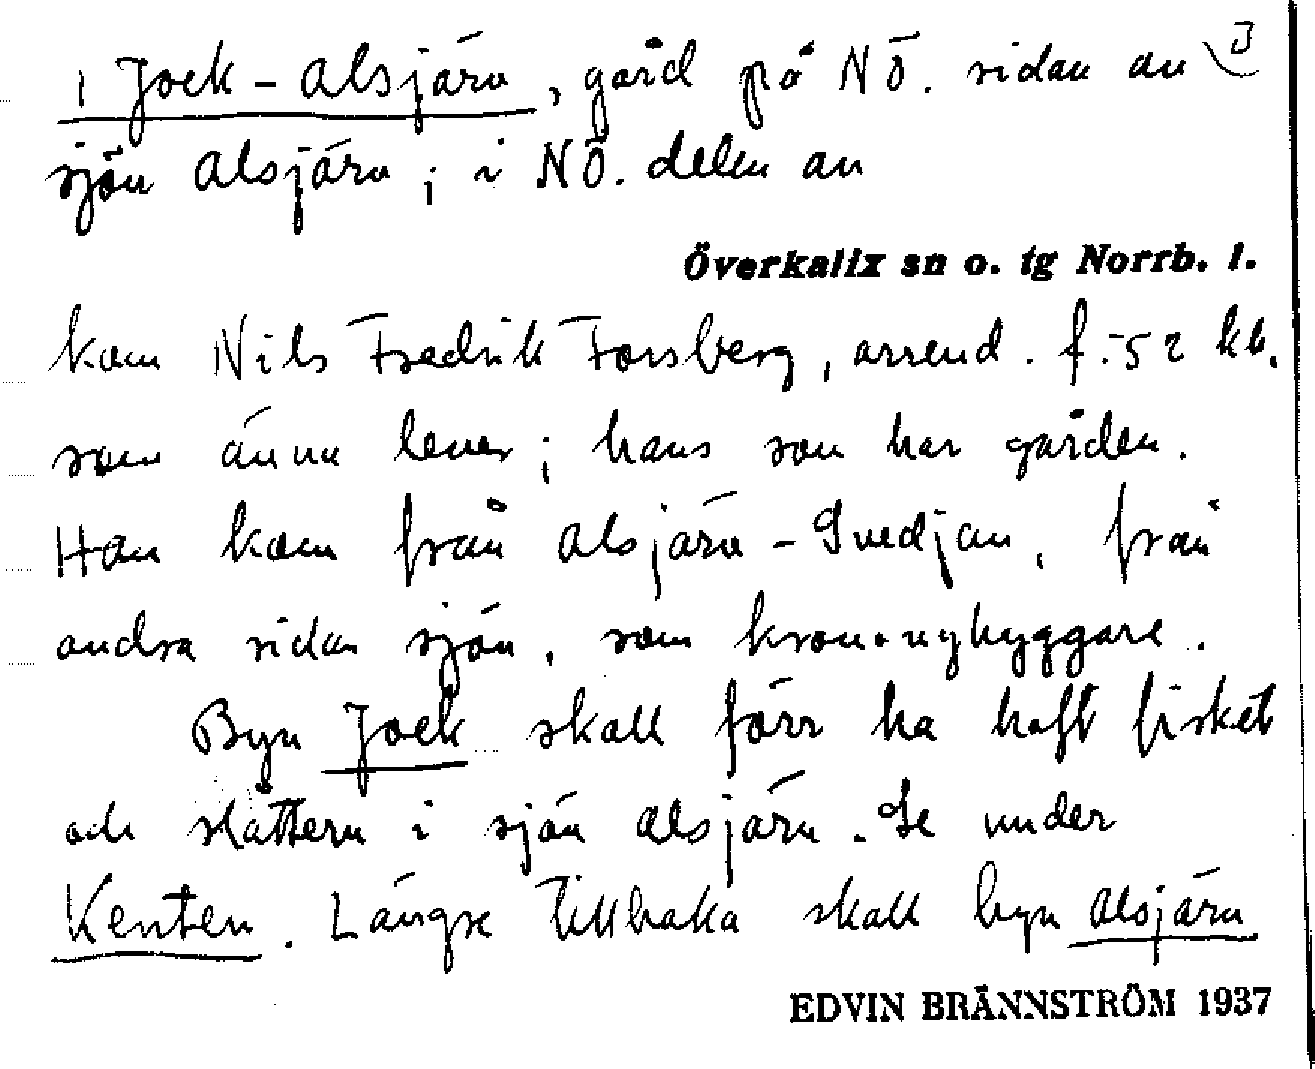 i Jock-Alsjärv, gård på NÖ. sidan av
sjön Alsjärv; i NÖ. delen av
Överkalix sn o. tg Norrb. l.
kom Nils Fredrik Forsberg, arrend. f. -52 kb.
som ännu lever; hans son har gården.
Han kom från Alsjärv-Svedjan, från
andra sidan sjön, som krono-nybyggare.
Byn Jock skall förr ha haft fisket
och slåttern i sjön Alsjärv. Se under
Kenten. Längre tillbaka skall byn Alsjärv
EDVIN BRÄNNSTRÖM 1937